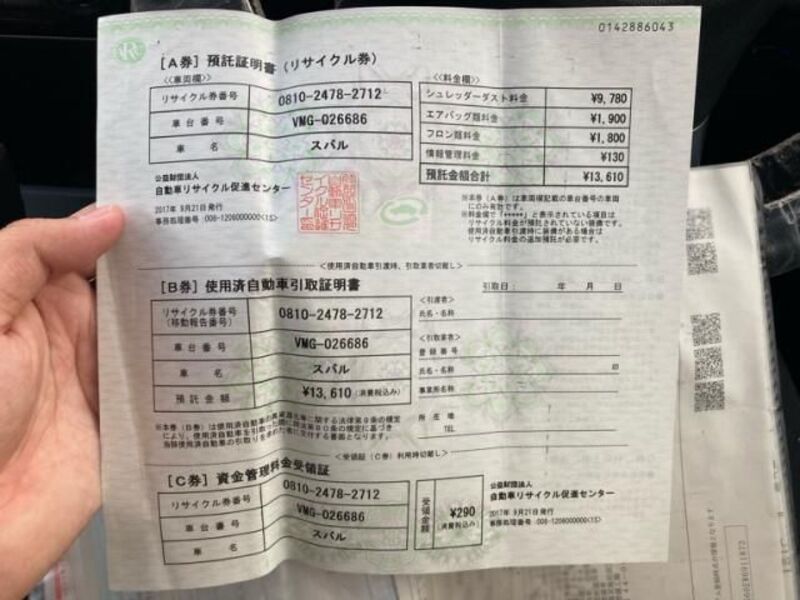 0142886043
[A券] 預託証明書(リサイクル券)
<<車両欄>>
リサイクル券番号 0810-2478-2712
車台番号 VMG-026686
車名 スバル
<<料金欄>>
シュレッダーダスト料金 ¥9,780
エアバッグ類料金 ¥1,900
フロン類料金 ¥1,800
情報管理料金 ¥130
預託金額合計 ¥13,610
公益財団法人
自動車リサイクル促進センター
2017年 9月21日 発行
※本券(A券)は車両欄記載の車台番号の車両
にのみ有効です。
※料金欄で「*****」と表示されている項目は
リサイクル料金が預託されていない装備です。
使用済自動車引渡時に装備がある場合は
リサイクル料金の追加預託が必要です。
<使用済自動車引渡時、引取業者切離し>
[B券] 使用済自動車引取証明書
引取日: 年 月 日
リサイクル券番号
(移動報告番号) 0810-2478-2712
車台番号 VMG-026686
車名 スバル
預託金額 ¥13,610 (消費税込み)
<引渡者>
氏名・名称
<引取業者>
登録番号
氏名・名称 印
事業所名称
所在地
TEL
※本券(B券)は使用済自動車の再資源化等に関する法律第9条の規定
により、使用済自動車を引取った際に同法第80条の規定に基づき
当該使用済自動車の引取りを求めた者に交付する書面となります。
<受領証(C券)利用時切離し>
[C券] 資金管理料金受領証
リサイクル券番号 0810-2478-2712
車台番号 VMG-026686
車名 スバル
受領金額 ¥290
(消費税込み)
公益財団法人
自動車リサイクル促進センター
2017年 9月21日発行